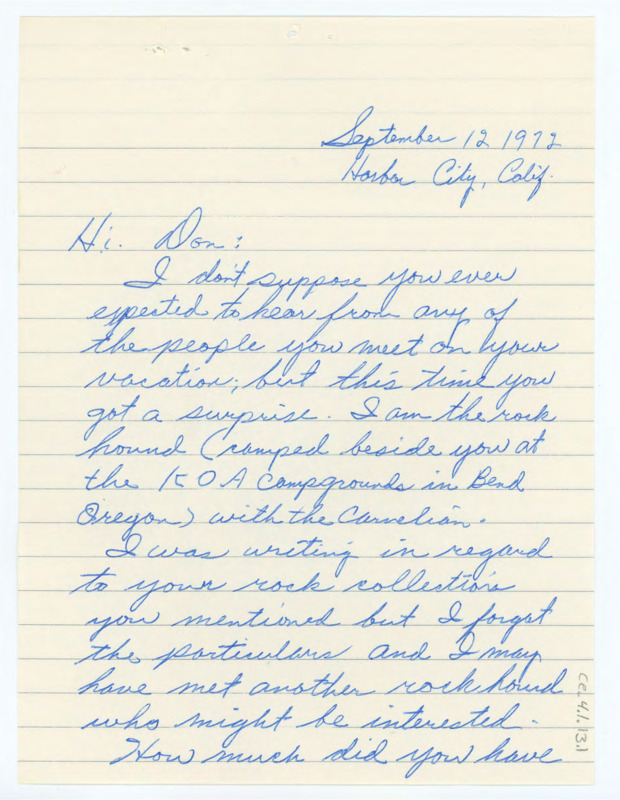 September 12 1972
Harbor City, Calif.
Hi. Don:
I don't suppose you ever
expected to hear from any of
the people you meet on your
vacation; but this time you
got a surprise. I am the rock
hound (camped beside you at
the KOA Campgrounds in Bend
Oregon) with the Carnelian.
I was writing in regard
to your rock collections
you mentioned but I forgot
the particulars and I may
have met another rockhound
who might be interested.
How much did you have
ce.4.1.13.1